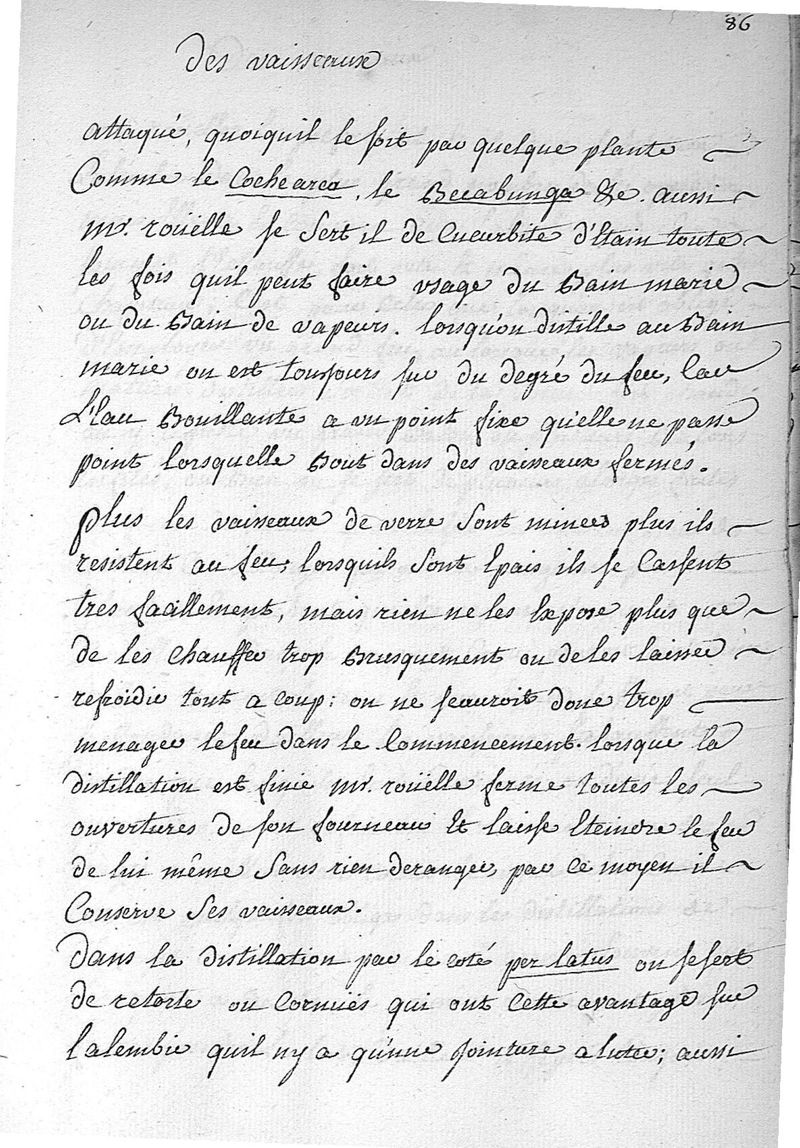 86
des vaisseaux
attaqué, quoiquil le soit par quelque plante
Comme le Cochearea, le Beccabunga &c. aussi
mr. roüelle se sert il de Cucurbite d'Etain toute
les fois quil peut faire usage du Bain marie
ou du Bain de vapeurs. lorsqu'on distille au Bain
marie on est toujours sur du degré du feu, car
L'Eau Bouillante a un point fixe qu'elle ne passe
point lorsquelle Bout dans des vaisseaux fermés.
plus les vaisseaux de verre sont minces plus ils
resistent au feu; lorsquils sont Epais ils se Cassent
tres facillement, mais rien ne les Expose plus que
de les chauffer trop Brusquement ou de les laisser
refroidir tout a coup; on ne scauroit donc trop
menager le feu dans le Commencement. lorsque la
distillation est finie mr. roüelle ferme toutes les
ouvertures de son fourneau Et laisse Eteindre le feu
de lui même sans rien deranger, par ce moyen il
Conserve ses vaisseaux.
Dans la distillation par le coté per latus on se sert
de retorte ou Cornües qui ont Cette avantage sur
l'alembic quil ny a qu'une jointure a luter; aussi